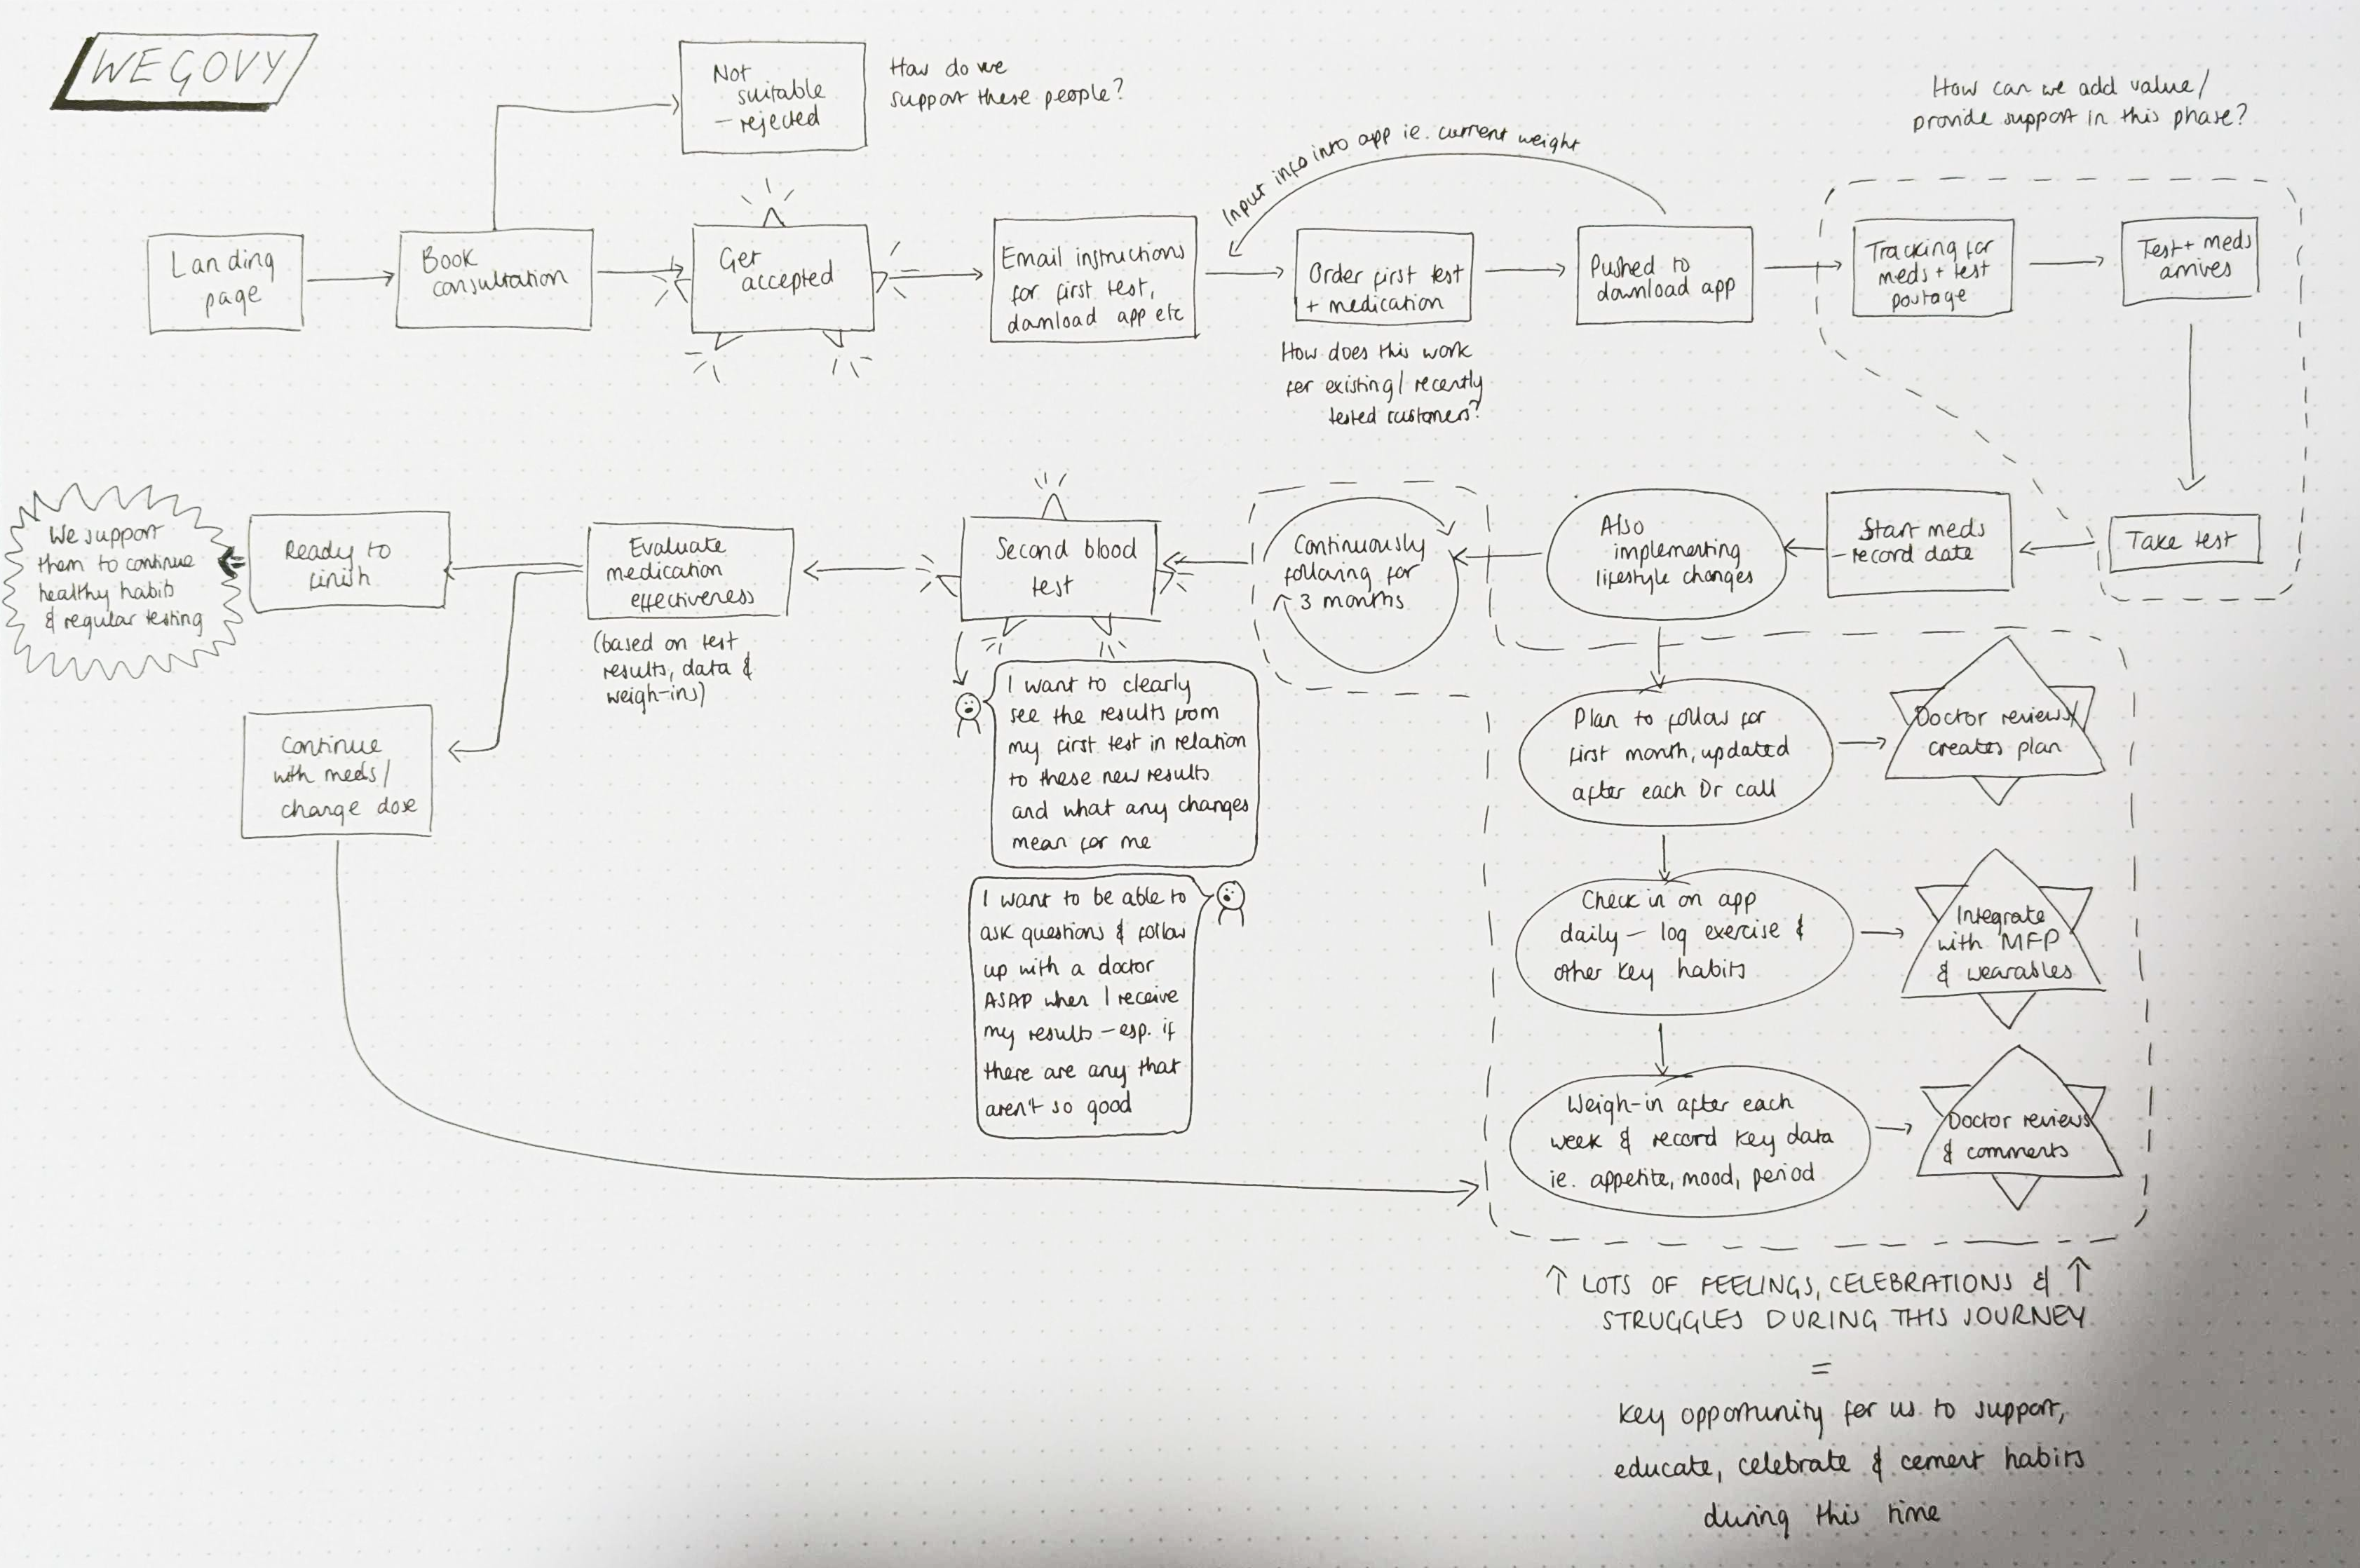 WEGOVY
Not
suitable
- rejected
How do we
support these people?
How can we add value/
provide support in this phase?
Input info into app ie. current weight
Landing
page
Book
consultation
Get
accepted
Email instructions
for first test,
download app etc
Order first test
+ medication
How does this work
for existing/recently
tested customers?
Pushed to
download app
Tracking for
meds + test
postage
Test + meds
arrives
Take test
Start meds
- record date
Also
implementing
lifestyle changes
Continuously
following for
3 months
Second blood
test
Evaluate
medication
effectiveness
(based on test
results, data &
weigh-ins)
Ready to
finish
We support
them to continue
healthy habits
& regular testing
Continue
with meds/
change dose
I want to clearly
see the results from
my first test in relation
to these new results
and what any changes
mean for me
I want to be able to
ask questions & follow
up with a doctor
ASAP when I receive
my results - esp. if
there are any that
aren't so good
Plan to follow for
first month, updated
after each Dr call
Doctor reviews/
creates plan
Check in on app
daily - log exercise &
other key habits
Integrate
with MFP
& wearables
Weigh-in after each
week & record key data
ie. appetite, mood, period
Doctor reviews
& comments
↑ LOTS OF FEELINGS, CELEBRATIONS & ↑
STRUGGLES DURING THIS JOURNEY
=
Key opportunity for us to support,
educate, celebrate & cement habits
during this time